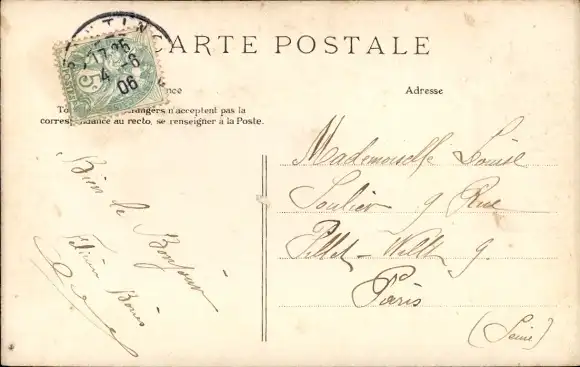 CARTE POSTALE
17 25
4 - 6
06
5
nce
Adresse
To rangers n'acceptent pas la
correspondance au recto, se renseigner à la Poste.
Bien le Bonjour
Mademoiselle Louise
Soulier 9 Rue
Pillet-Will 9.
Paris
(Seine)